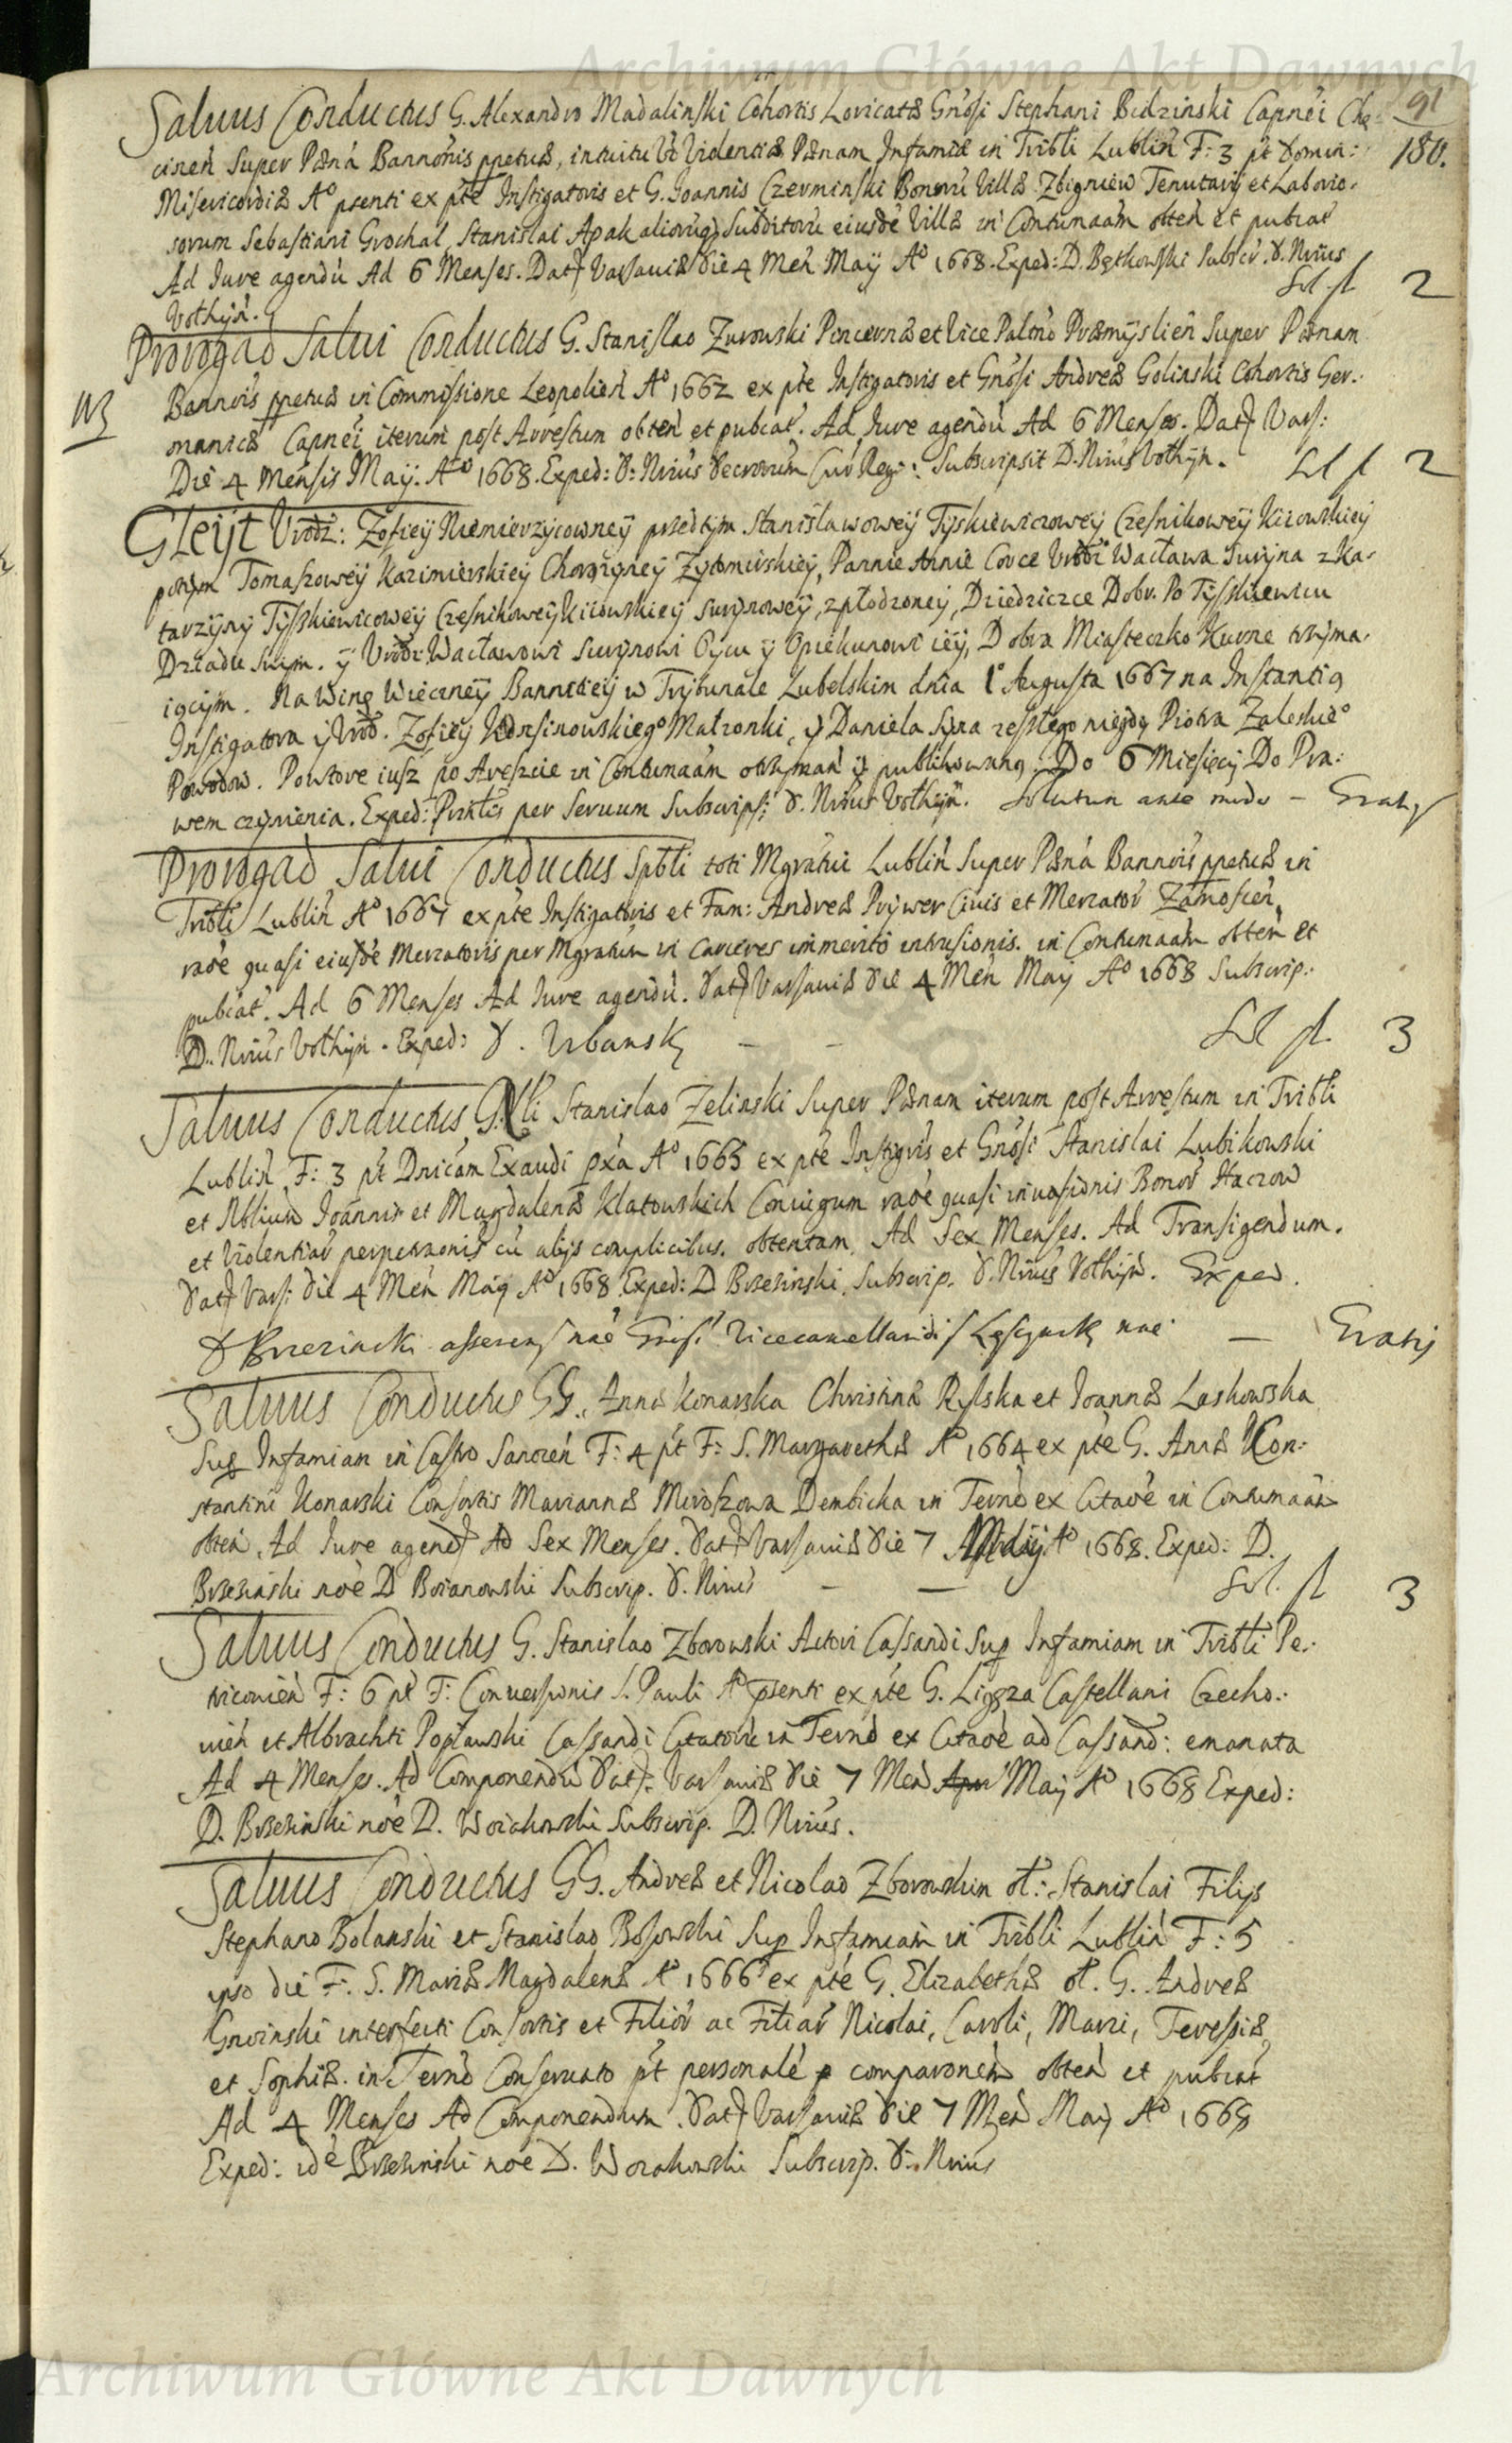 Archiwum Główne Akt Dawnych
91
180.
Saluus Conductus G. Alexandro Madalinski Cohortis Loricatæ Gnosi Stephani Bidzinski Capnei Che-
cinen Super Pæna Bannonis ppetuæ, intuitu Violentiæ Pænam Infamiæ in Tribli Lublin F: 3 pt Domin:
Misericordiæ Ao psenti ex pte Instigatoris et G. Joannis Czerminski Bonoru Villæ Zbigniew Tenutarij et Laborio-
sorum Sebastiani Grochal, Stanislai Apak aliorumq Subditoru eiusde Villæ in Contumaam obten et publcat
Ad Jure agendu Ad 6 Menses. Dat Varsauiæ Die 4 Men May Ao 1668. Exped: D. Bętkowski Subscr. D. Nrius
Vothijn. Sol fl 2
Prorogao Salui Conductus G. Stanislao Zurowski Pincernæ et Vice Paltno Præmyslien Super Pænam
NB Bannis ppetuæ in Commissione Leopolien Ao 1662 ex pte Instigatoris et Gnosi Andreæ Golinski Cohortis Ger-
manicæ Capnei iterum post Arrestum obten et publcat. Ad Jure agendu Ad 6 Menses. Dat Vars:
Die 4 Mensis Maij. Ao 1668. Exped: D: Nrius Decretorum Cur Reg: Subscripsit D. Nrius Vothijn. Sol fl 2
Gleijt Vrodz: Zofieij Niemierzycowneij przedtym Stanisławoweij Tyskiewiczoweij Czesnikoweij Kiiowskieij
potym Tomaszoweij Kazimierskieij Chorązyneij Zytomirskieij, Pannie Annie Corce Vrodz Wacława Suryna z Ka-
tarzijny Tysskiewicoweij Czesnikoweij Kiiowskieij Surynoweij, zpłodzoneij, Dziedziczce Dobr. Po Tysskiewicu
Dziadu Swym. ij Vrodz: Wacławowi Surynowi Oycu ij Opiekunowi ieij, Dobra Miasteczko Kurne trzyma-
iącijm. Na Winę Wieczneij Banniciey w Trybunale Lubelskim dnia 1o Augusta 1667 na Instantią
Instigatora ij Vrod. Zofieij Korsinowskiego Małzonki, ij Daniela Syna zeszłego niegdy Piotra Zaleskieo
Powodow. Powtore iusz po Areszcie in Contumaam otrzyman ij publikowaną. Do 6 Miesięcij Do Pra-
wem czynienia. Exped: Præntis per Seruum Subscrips: D. Nrius Vothijn. Solutum ante medu – Gratis
Prorogao Salui Conductus Spbli toti Mgratui Lublin Super Pæna Bannis ppetuæ in
Tribli Lublin Ao 1667 ex pte Instigatoris et Fam: Andreæ Prijwer Ciuis et Mercator Zamoscien,
raoe quasi eiusde Mercatoris per Mgratum in Carceres immerito intrusionis. in Contumaam obten et
publcat. Ad 6 Menses Ad Jure agendu. Dat Varsauiæ Die 4 Men May Ao 1668 Subscrip.
D. Nrius Vothijn. Exped: D. Urbansk – – Sol fl. 3
Saluus Conductus G. Stanislao Zelinski Super Pænam iterum post Arrestum in Tribli
Lublin F: 3 pt Dnicam Exaudi pxa Ao 1665 ex pte Instigris et Gnosi Stanislai Lubikowski
et Nblium Joannis et Magdalenæ Klatowskich Coniugum raoe quasi inuasionis Bonor Haczow
et Violentiar perpetraonis cu alijs complicibus. obtentam. Ad Sex Menses. Ad Transigendum.
Dat Vars: Die 4 Men May Ao 1668. Exped: D Brzezinski, Subscrip. D. Nrius Vothijn. Exped.
D Brzezinski asserens noe Vicecancellarij – Gratis
Saluus Conductus GG. Annæ Konarska Christinæ Rylska et Joannæ Laskowska
Sup Infamiam in Castro Sanocen F: 4 pt F: S. Margarethæ Ao 1664 ex pte G. Annæ Kon-
stantini Konarski Consortis Mariannæ Miroszowa Dembicka in Termo ex Citaoe in Contumaam
obten. Ad Jure agend Ad Sex Menses. Dat Varsauiæ Die 7 Maij Ao 1668. Exped: D.
Brzezinski noe D Boianowski Subscrip. D. Nrius – – Sol. fl 3
Saluus Conductus G. Stanislao Zborowski Actori Cassandi Sup Infamiam in Tribli Pe-
tricouien F: 6 pt F: Conuersionis S. Pauli Ao psenti ex pte G. Ligęza Castellani Czecho-
uien et Albrachti Popławski Cassandi Citatoru in Termo ex Citaoe ad Cassand: emanata
Ad 4 Menses. Ad Componendu Dat. Varsauiæ Die 7 Men Apr Maij Ao 1668 Exped:
D. Brzezinski noe D. Woiakowski Subscrip. D. Nrius.
Saluus Conductus GG. Andreæ et Nicolao Zborowskim ol: Stanislai Filijs
Stephano Bolanski et Stanislao Bosowski Sup Infamiam in Tribli Lublin F: 5
ipso die F. S. Mariæ Magdalenæ Ao 1666 ex pte G. Elizabethæ ol. G. Andreæ
Gnoinski interfecti Consortis et Filior ac Filiar Nicolai, Caroli, Marci, Teressiæ,
et Sophiæ. in Termo Conseruato pt personale comparonem obten et publcat
Ad 4 Menses Ad Componendum. Dat Varsauiæ Die 7 Men Maij Ao 1668
Exped: ide Brzezinski noe D. Worakowski Subscrip. D. Nrius
Archiwum Główne Akt Dawnych